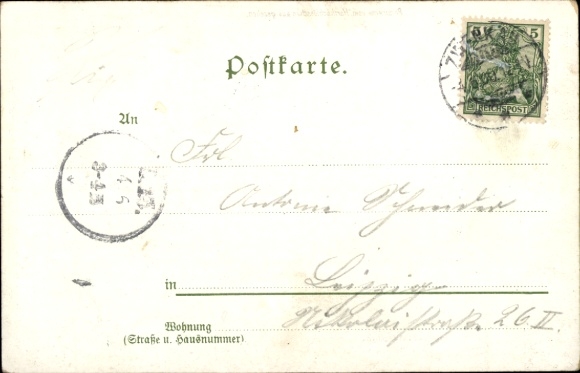 Postkarte.
5
REICHSPOST
An
Frl
Antonie Schneider
in Leipzig
Nikolaistraße 26 II
Wohnung
(Straße u. Hausnummer)